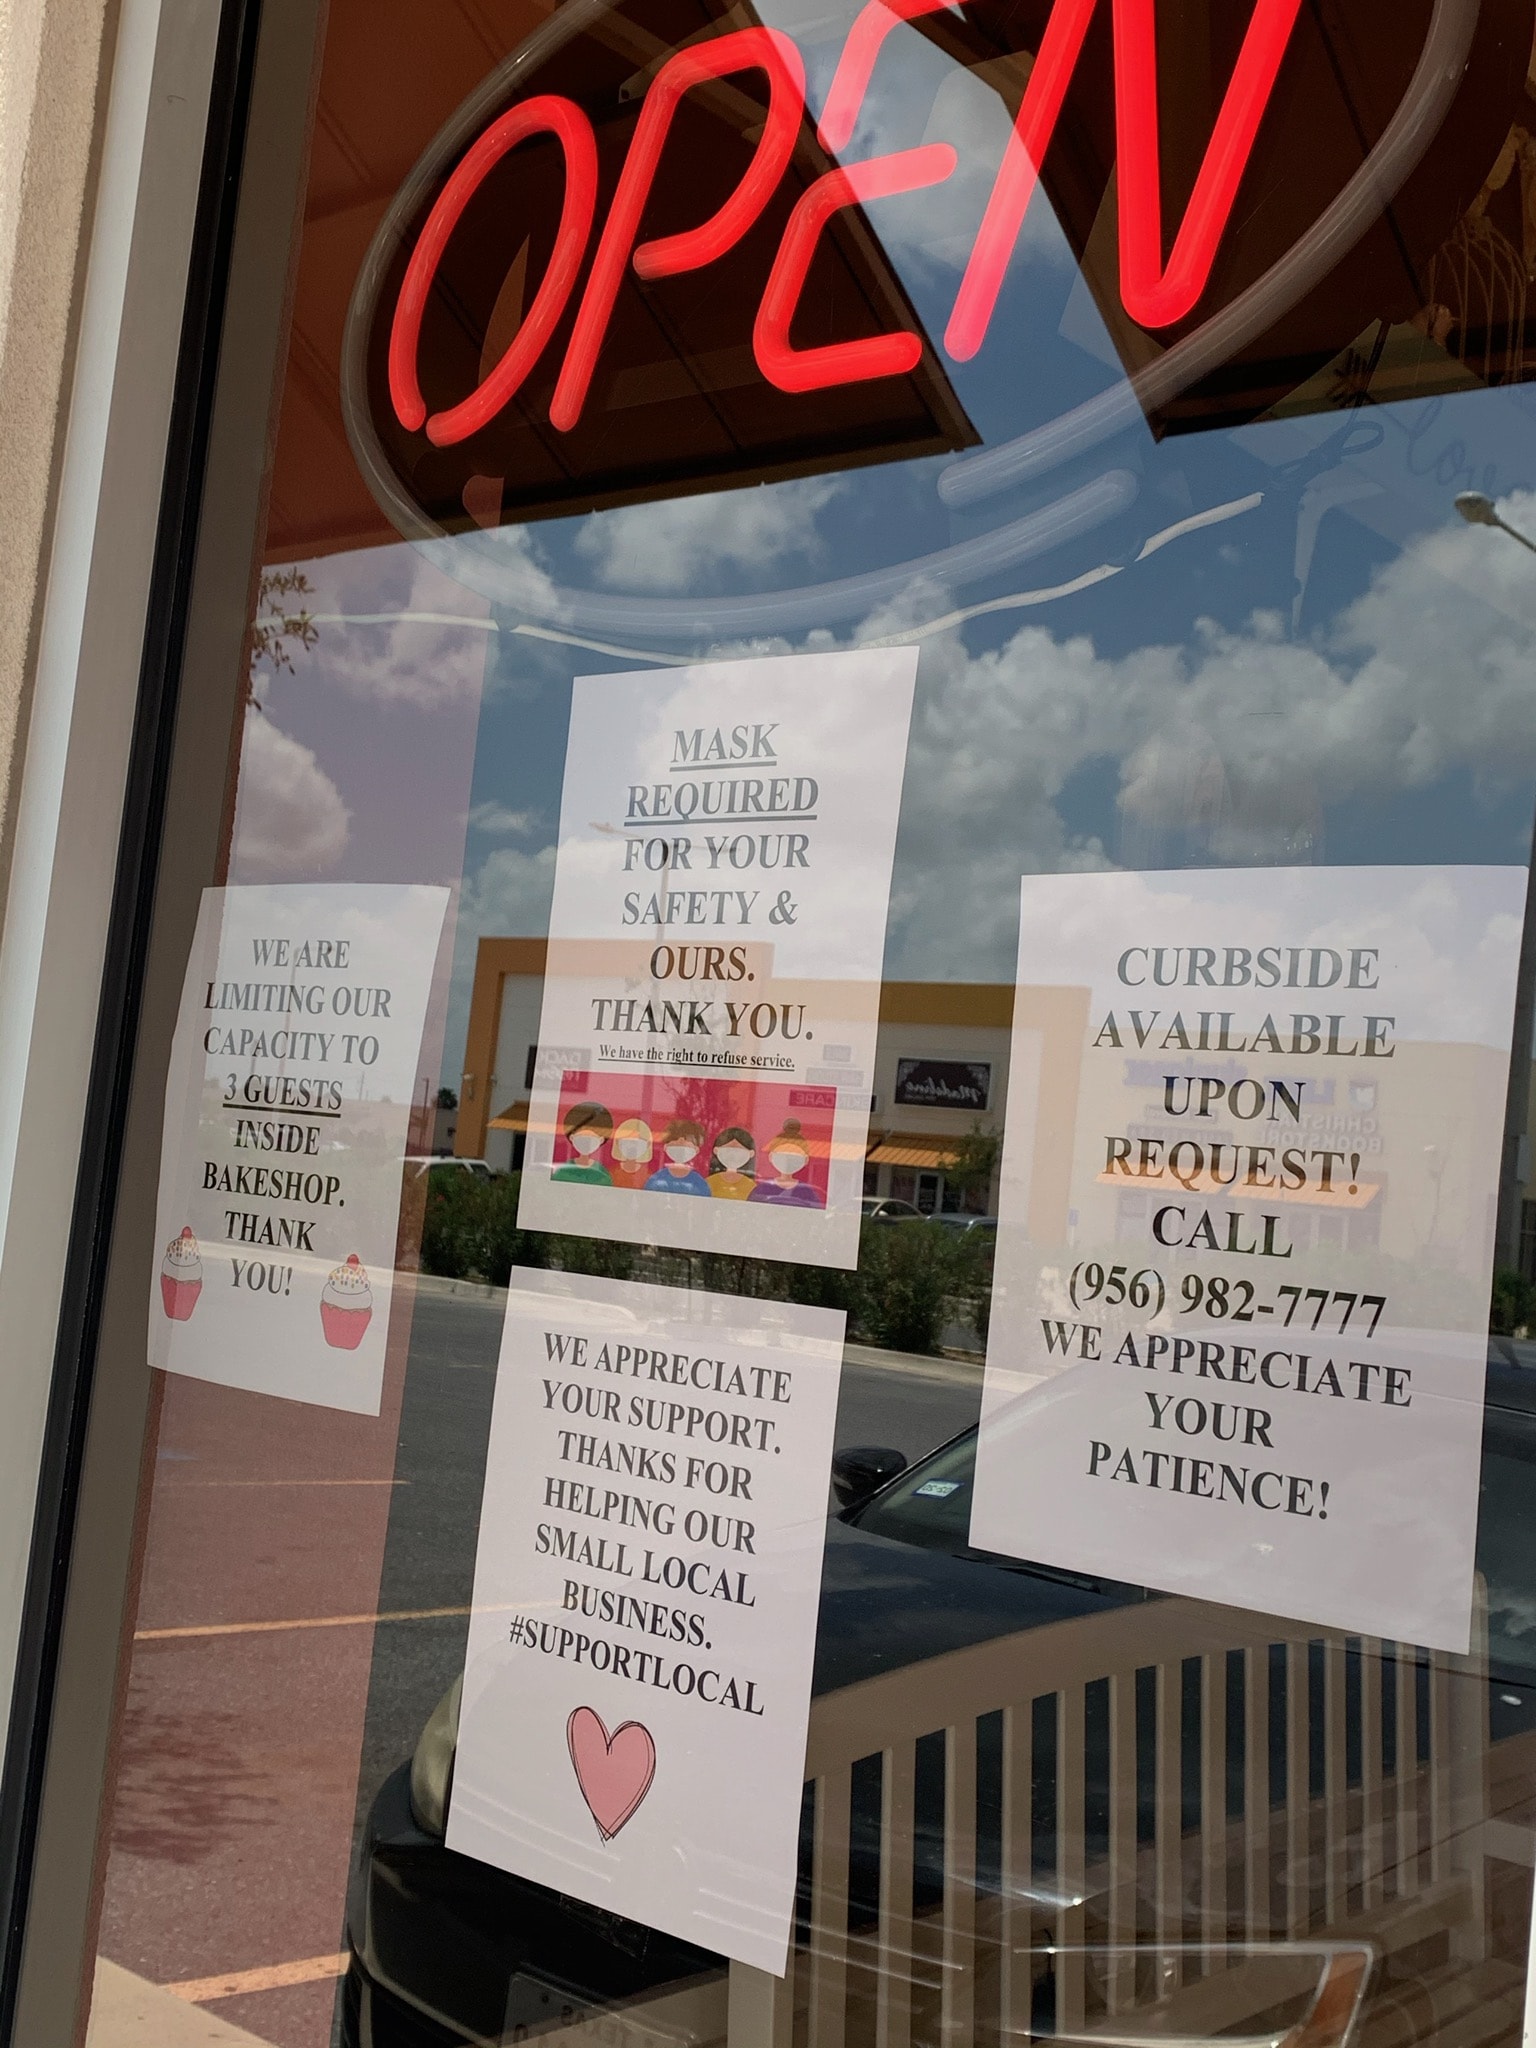 OPEN
MASK
REQUIRED
FOR YOUR
SAFETY &
OURS.
THANK YOU.
We have the right to refuse service.
WE ARE
LIMITING OUR
CAPACITY TO
3 GUESTS
INSIDE
BAKESHOP.
THANK
YOU!
CURBSIDE
AVAILABLE
UPON
REQUEST!
CALL
(956) 982-7777
WE APPRECIATE
YOUR
PATIENCE!
WE APPRECIATE
YOUR SUPPORT.
THANKS FOR
HELPING OUR
SMALL LOCAL
BUSINESS.
#SUPPORTLOCAL
Madeline
CHRISTIAN
BOOKSTORE
TEXAS